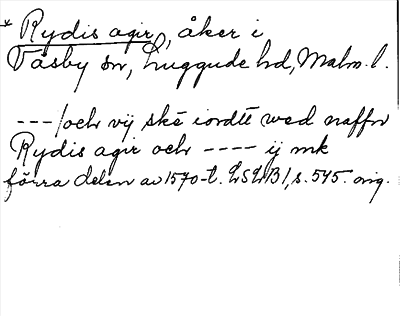 * Rydis agir, åker i
Väsby sn, Luggude hd, Malm. l.
--- / och vij skē iordtt wed naffn
Rydis agir och ---- ij mk
förra delen av 1570-t. LSLB 1, s. 545. orig.